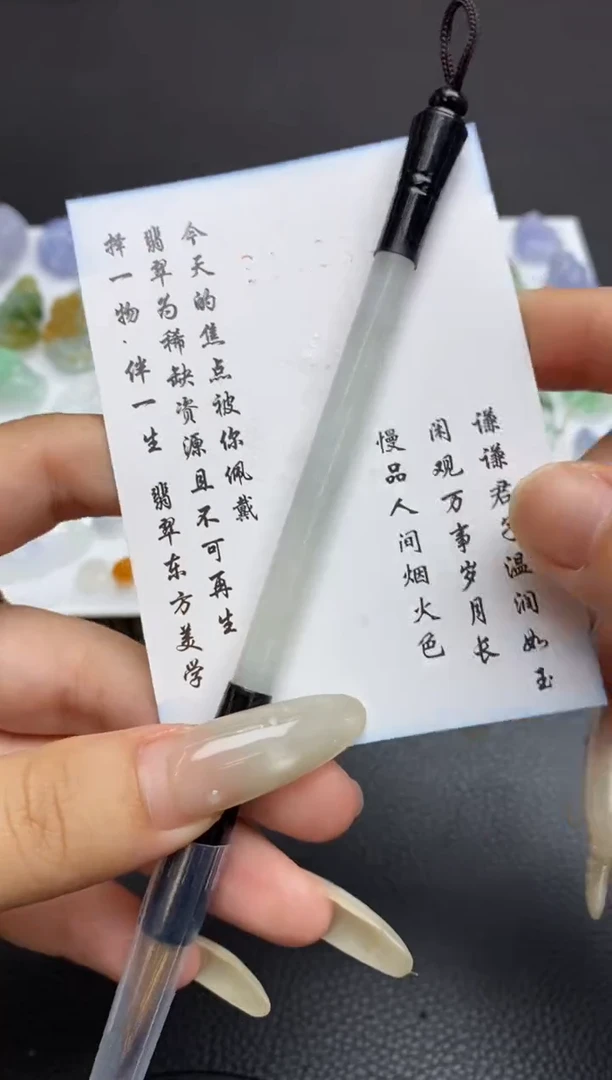 谦谦君子温润如玉
闲观万事岁月长
慢品人间烟火色
今天的焦点被你佩戴
翡翠为稀缺资源且不可再生
择一物·伴一生 翡翠东方美学